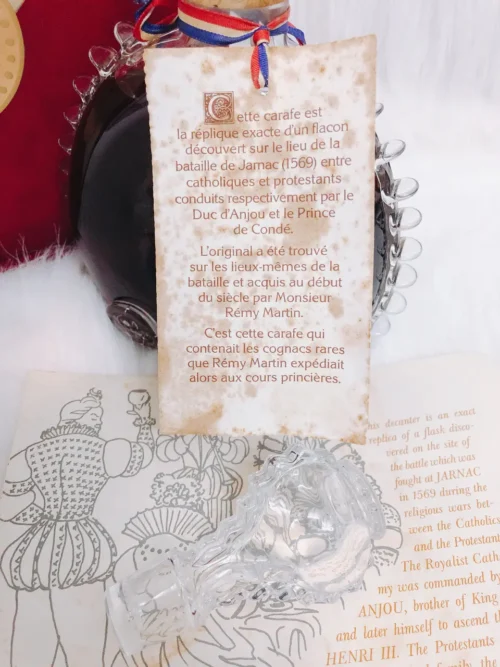 Cette carafe est
la réplique exacte d'un flacon
découvert sur le lieu de la
bataille de Jarnac (1569) entre
catholiques et protestants
conduits respectivement par le
Duc d'Anjou et le Prince
de Condé.
L'original a été trouvé
sur les lieux-mêmes de la
bataille et acquis au début
du siècle par Monsieur
Rémy Martin.
C'est cette carafe qui
contenait les cognacs rares
que Rémy Martin expédiait
alors aux cours princières.
his decanter is an exact
replica of a flask disco-
vered on the site of
the battle which was
fought at JARNAC
in 1569 during the
religious wars bet-
ween the Catholic
and the Protestant
The Royalist Cath
my was commanded by
ANJOU, brother of King
and later himself to ascend th
HENRI III. The Protestants
family, the